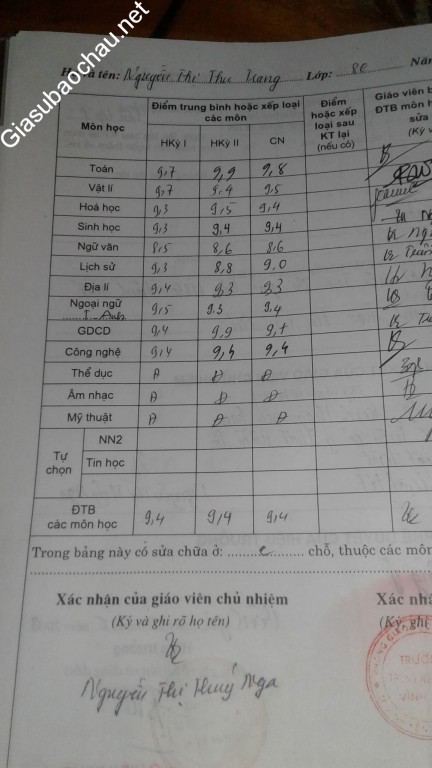 Giasubaochau.net
Họ và tên: Nguyễn Thị Thu Trang Lớp: 8C Năm
Môn học Điểm trung bình hoặc xếp loại các môn Điểm hoặc xếp loại sau KT lại (nếu có) Giáo viên b
ĐTB môn h
sửa
(Ký v
HKỳ I HKỳ II CN
Toán 9,7 9,9 9,8
Vật lí 9,7 9,4 9,5
Hoá học 9,3 9,5 9,4
Sinh học 9,3 9,4 9,4
Ngữ văn 8,5 8,6 8,6
Lịch sử 9,3 8,8 9,0
Địa lí 9,4 9,3 9,3
Ngoại ngữ
T. Anh 9,5 9,3 9,4
GDCD 9,4 9,9 9,7
Công nghệ 9,4 9,4 9,4
Thể dục Đ Đ Đ
Âm nhạc Đ Đ Đ
Mỹ thuật Đ Đ Đ
Tự chọn NN2
Tin học
ĐTB
các môn học 9,4 9,4 9,4
Trong bảng này có sửa chữa ở: chỗ, thuộc các môn
Xác nhận của giáo viên chủ nhiệm Xác nhậ
(Ký và ghi rõ họ tên) (Ký, ghi
TRƯỜ
Nguyễn Thị Thuý Nga